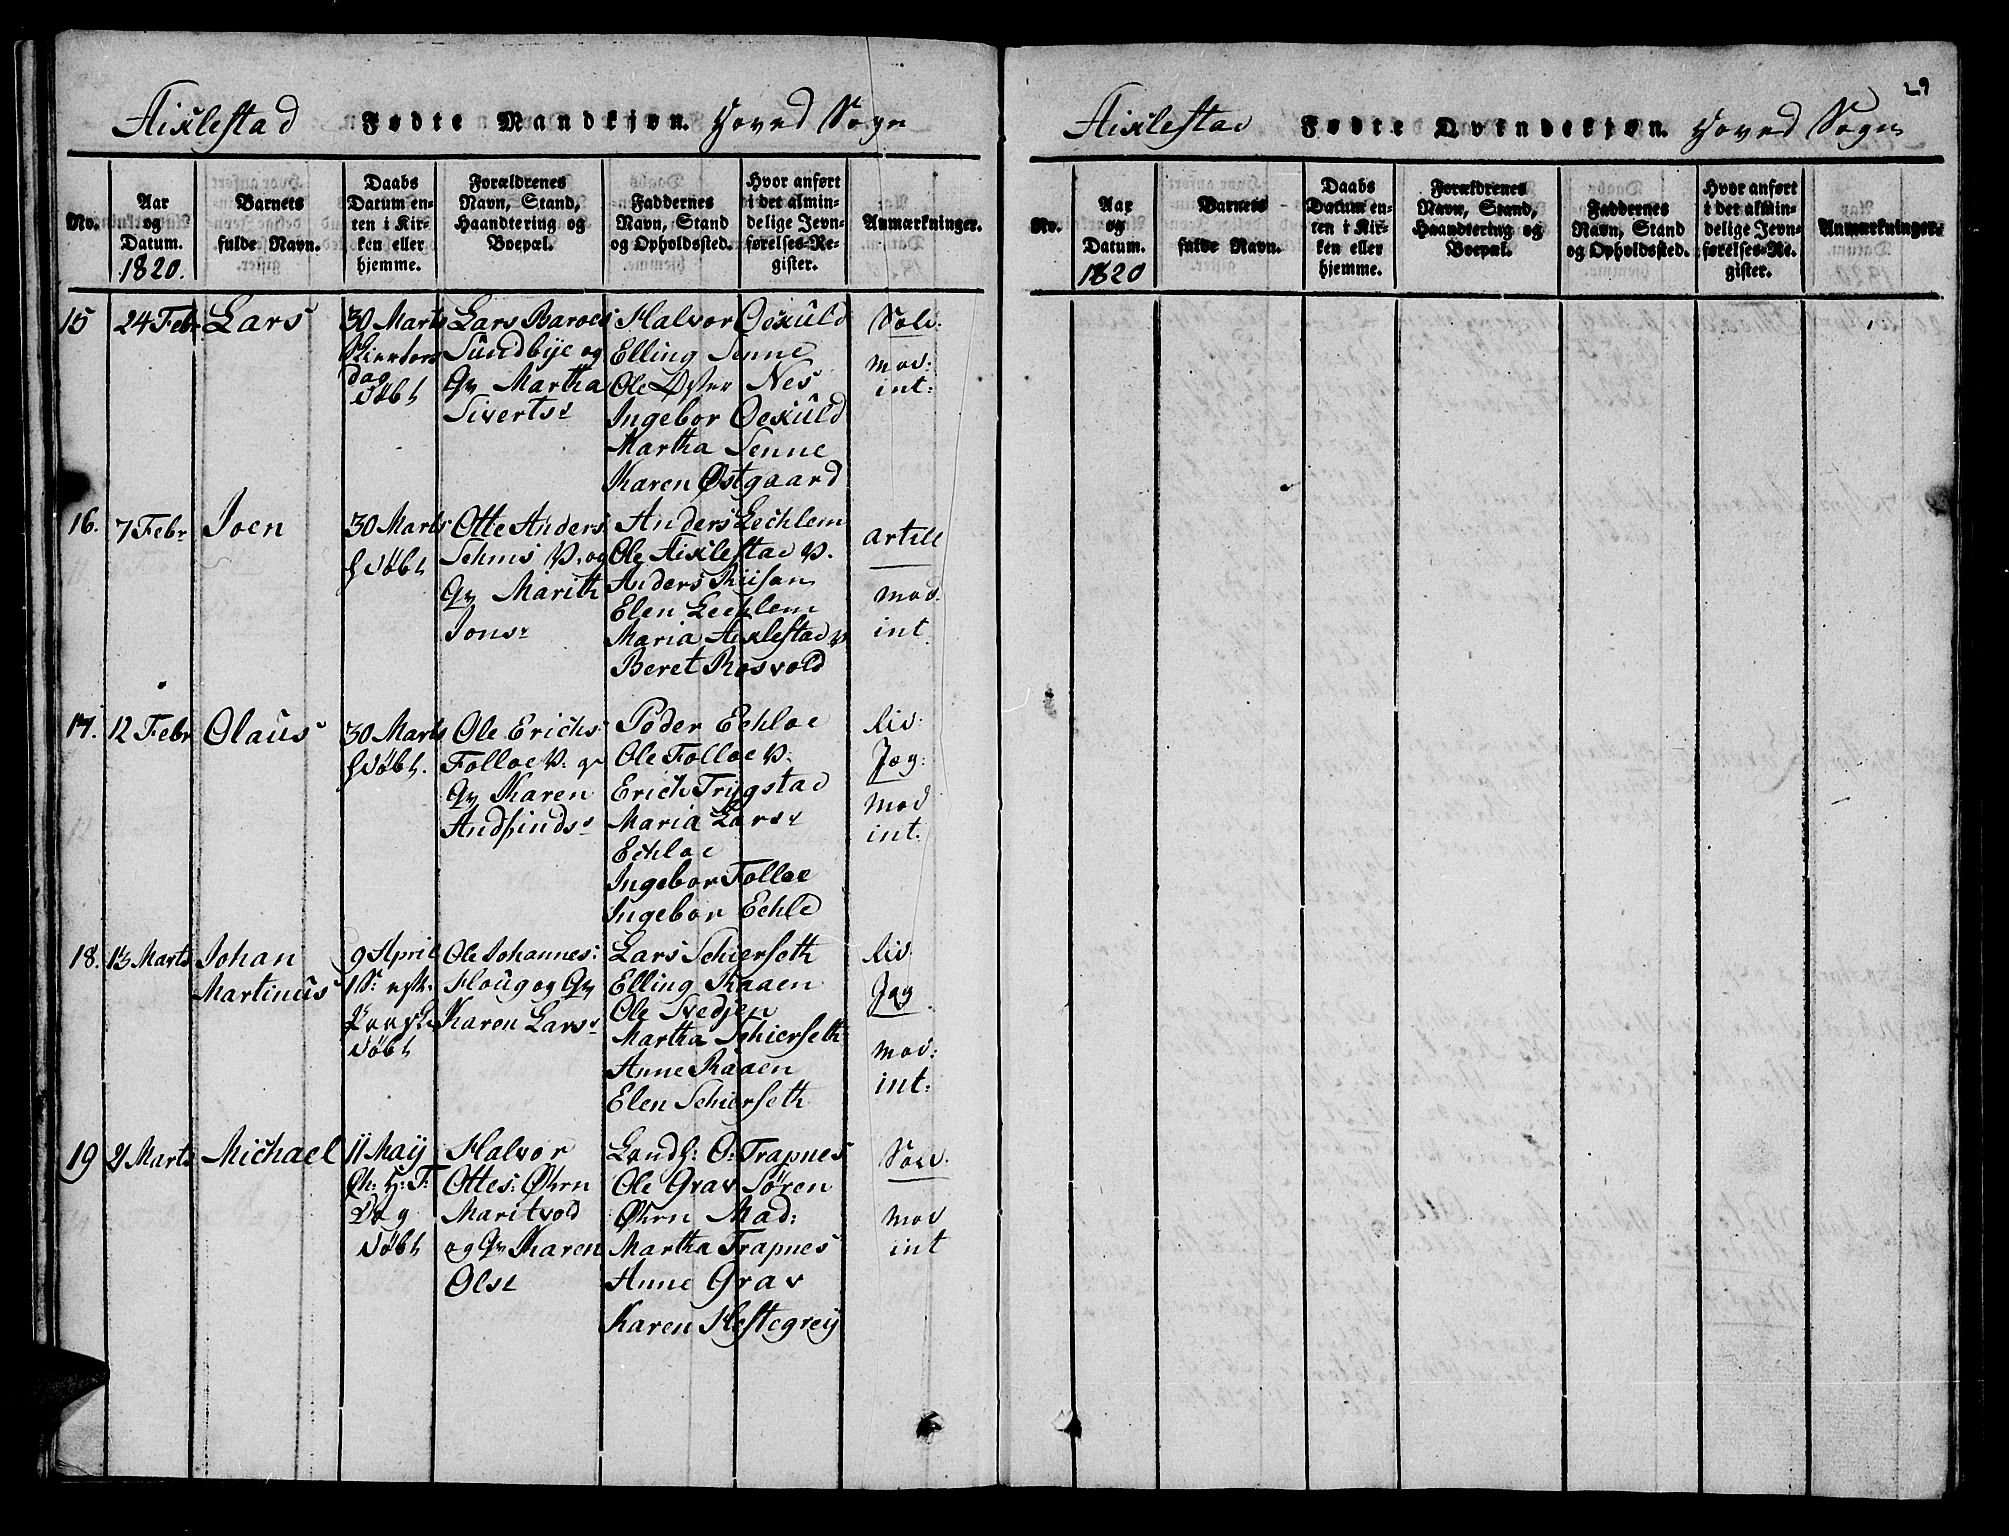 Fixlestad Fødte Mandkjøn. Hoved Sogn
No.
Aar
og
Datum.
1820.
Barnets
fulde Navn.
Daabs
Datum en-
ten i Kir-
ken eller
hjemme.
Forældrenes
Navn, Stand,
Haandtering og
Boepæl.
Faddernes
Navn, Stand
og Opholdssted.
Hvor anført
i det almin-
delige Jevn-
førelses-Re-
gister.
Anmærkninger.
15
24 Febr
Lars
30 Marts
Skiertors
dag
døbt
Lars Baroes
Sundbye og
Qv Martha
Siverts
Halvor Oexuld
Elling Senne
Ole Øster Nes
Ingebor Oexuld
Martha Senne
Karen Østgaard
Sold.
mod:
int:
16.
7 Febr
Joen
30 Marts
døbt
Otte Anders
Sehms V. og
Qv Marith
Jons
Anders Lechlem
Ole Fixlestad V.
Anders Riisan
Elen Lechlem
Maria Fixlestad V
Beret Rosvold
Artill
mod.
int
17.
12 Febr
Olaus
30 Marts
døbt.
Ole Erichs
Folloe V: og
Qv Karen
Andfinds
Peder Echloe
Ole Folloe V.
Erich Trygstad
Maria Lars
Echloe
Ingebor Folloe
Ingebor Echle
liv.
Jæg:
mod
int.
18.
13 Marts
Johan
Martinus
9 April
1 S. eft.
Paaske
døbt
Ole Johannes:
Houg og Qv
Karen Lars
Lars Schierseth
Elling Raaen
Ole Svedjen
Martha Schierseth
Anne Raaen
Elen Schierseth
liv.
Jæg.
mod:
int:
19
21 Marts
Michael
11 May
Ch: H: F:
Dag
døbt
Halvor
Ottes: Øhrn
Maritvold
og Qv Karen
Ols
Lendh: O: Trapnes
Ole Grav Sören
Øhrn Mad:
Martha Trapnes
Anne Grav
Karen Hestegrey
Sold.
mod
int
29
Fixlestad Fødte Qvindekjøn. Hoved Sogn
No.
Aar
og
Datum.
1820
Barnets
fulde Navn.
Daabs
Datum en-
ten i Kir-
ken eller
hjemme.
Forældrenes
Navn, Stand,
Haandtering og
Boepæl.
Faddernes
Navn, Stand
og Opholdssted.
Hvor anført
i det almin-
delige Jevn-
førelses-Re-
gister.
Anmærkninger.